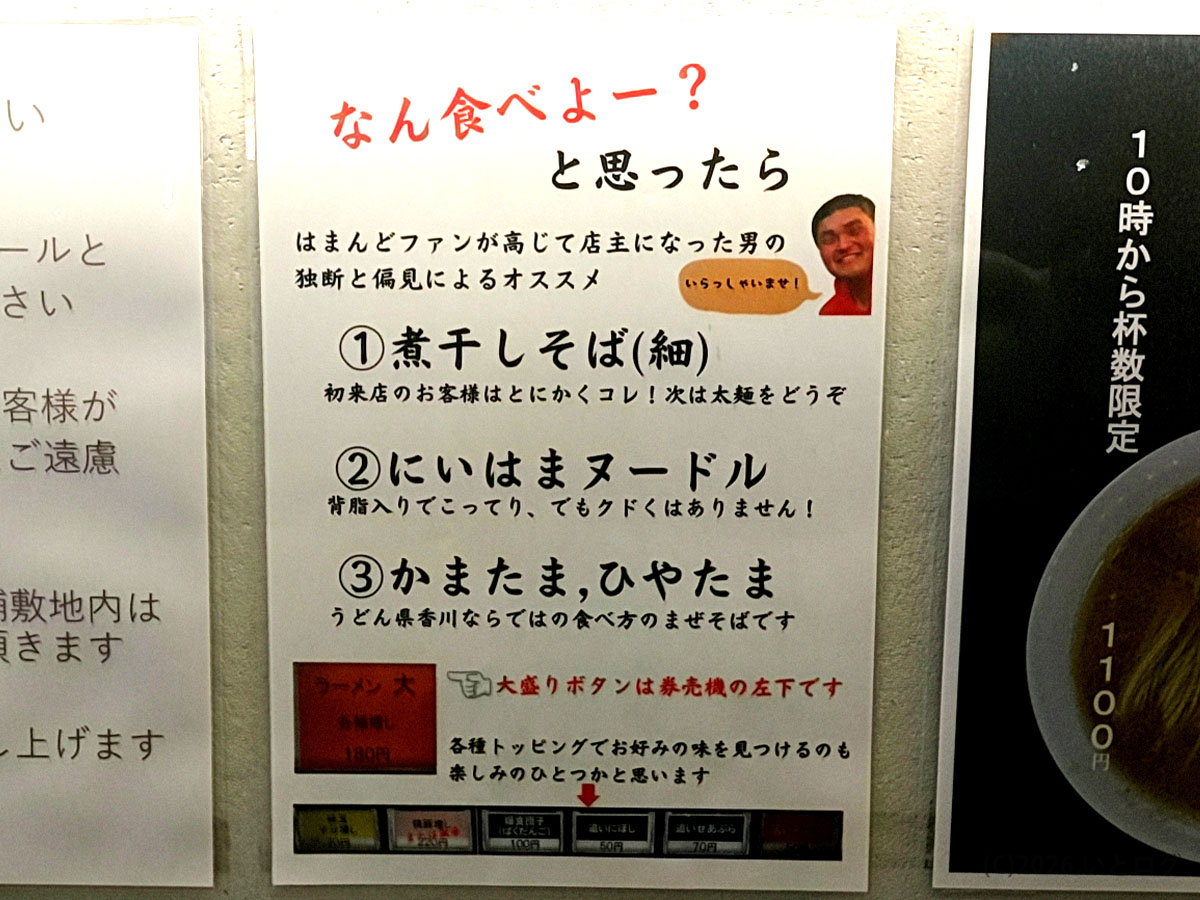 い
ールと
さい
客様が
ご遠慮
敷地内は
きます
し上げます
なん食べよー？
と思ったら
はまんどファンが高じて店主になった男の
独断と偏見によるオススメ
いらっしゃいませ！
①煮干しそば(細)
初来店のお客様はとにかくコレ！次は太麺をどうぞ
②にいはまヌードル
背脂入りでこってり、でもクドくはありません！
③かまたま,ひやたま
うどん県香川ならではの食べ方のまぜそばです
ラーメン 大
180円
大盛りボタンは券売機の左下です
各種トッピングでお好みの味を見つけるのも
楽しみのひとつかと思います
爆食団子
(ばくだんご)
100円
追いにぼし
50円
追いせあぶら
70円
220円
10時から杯数限定
1100円
(C)2026 いとログ